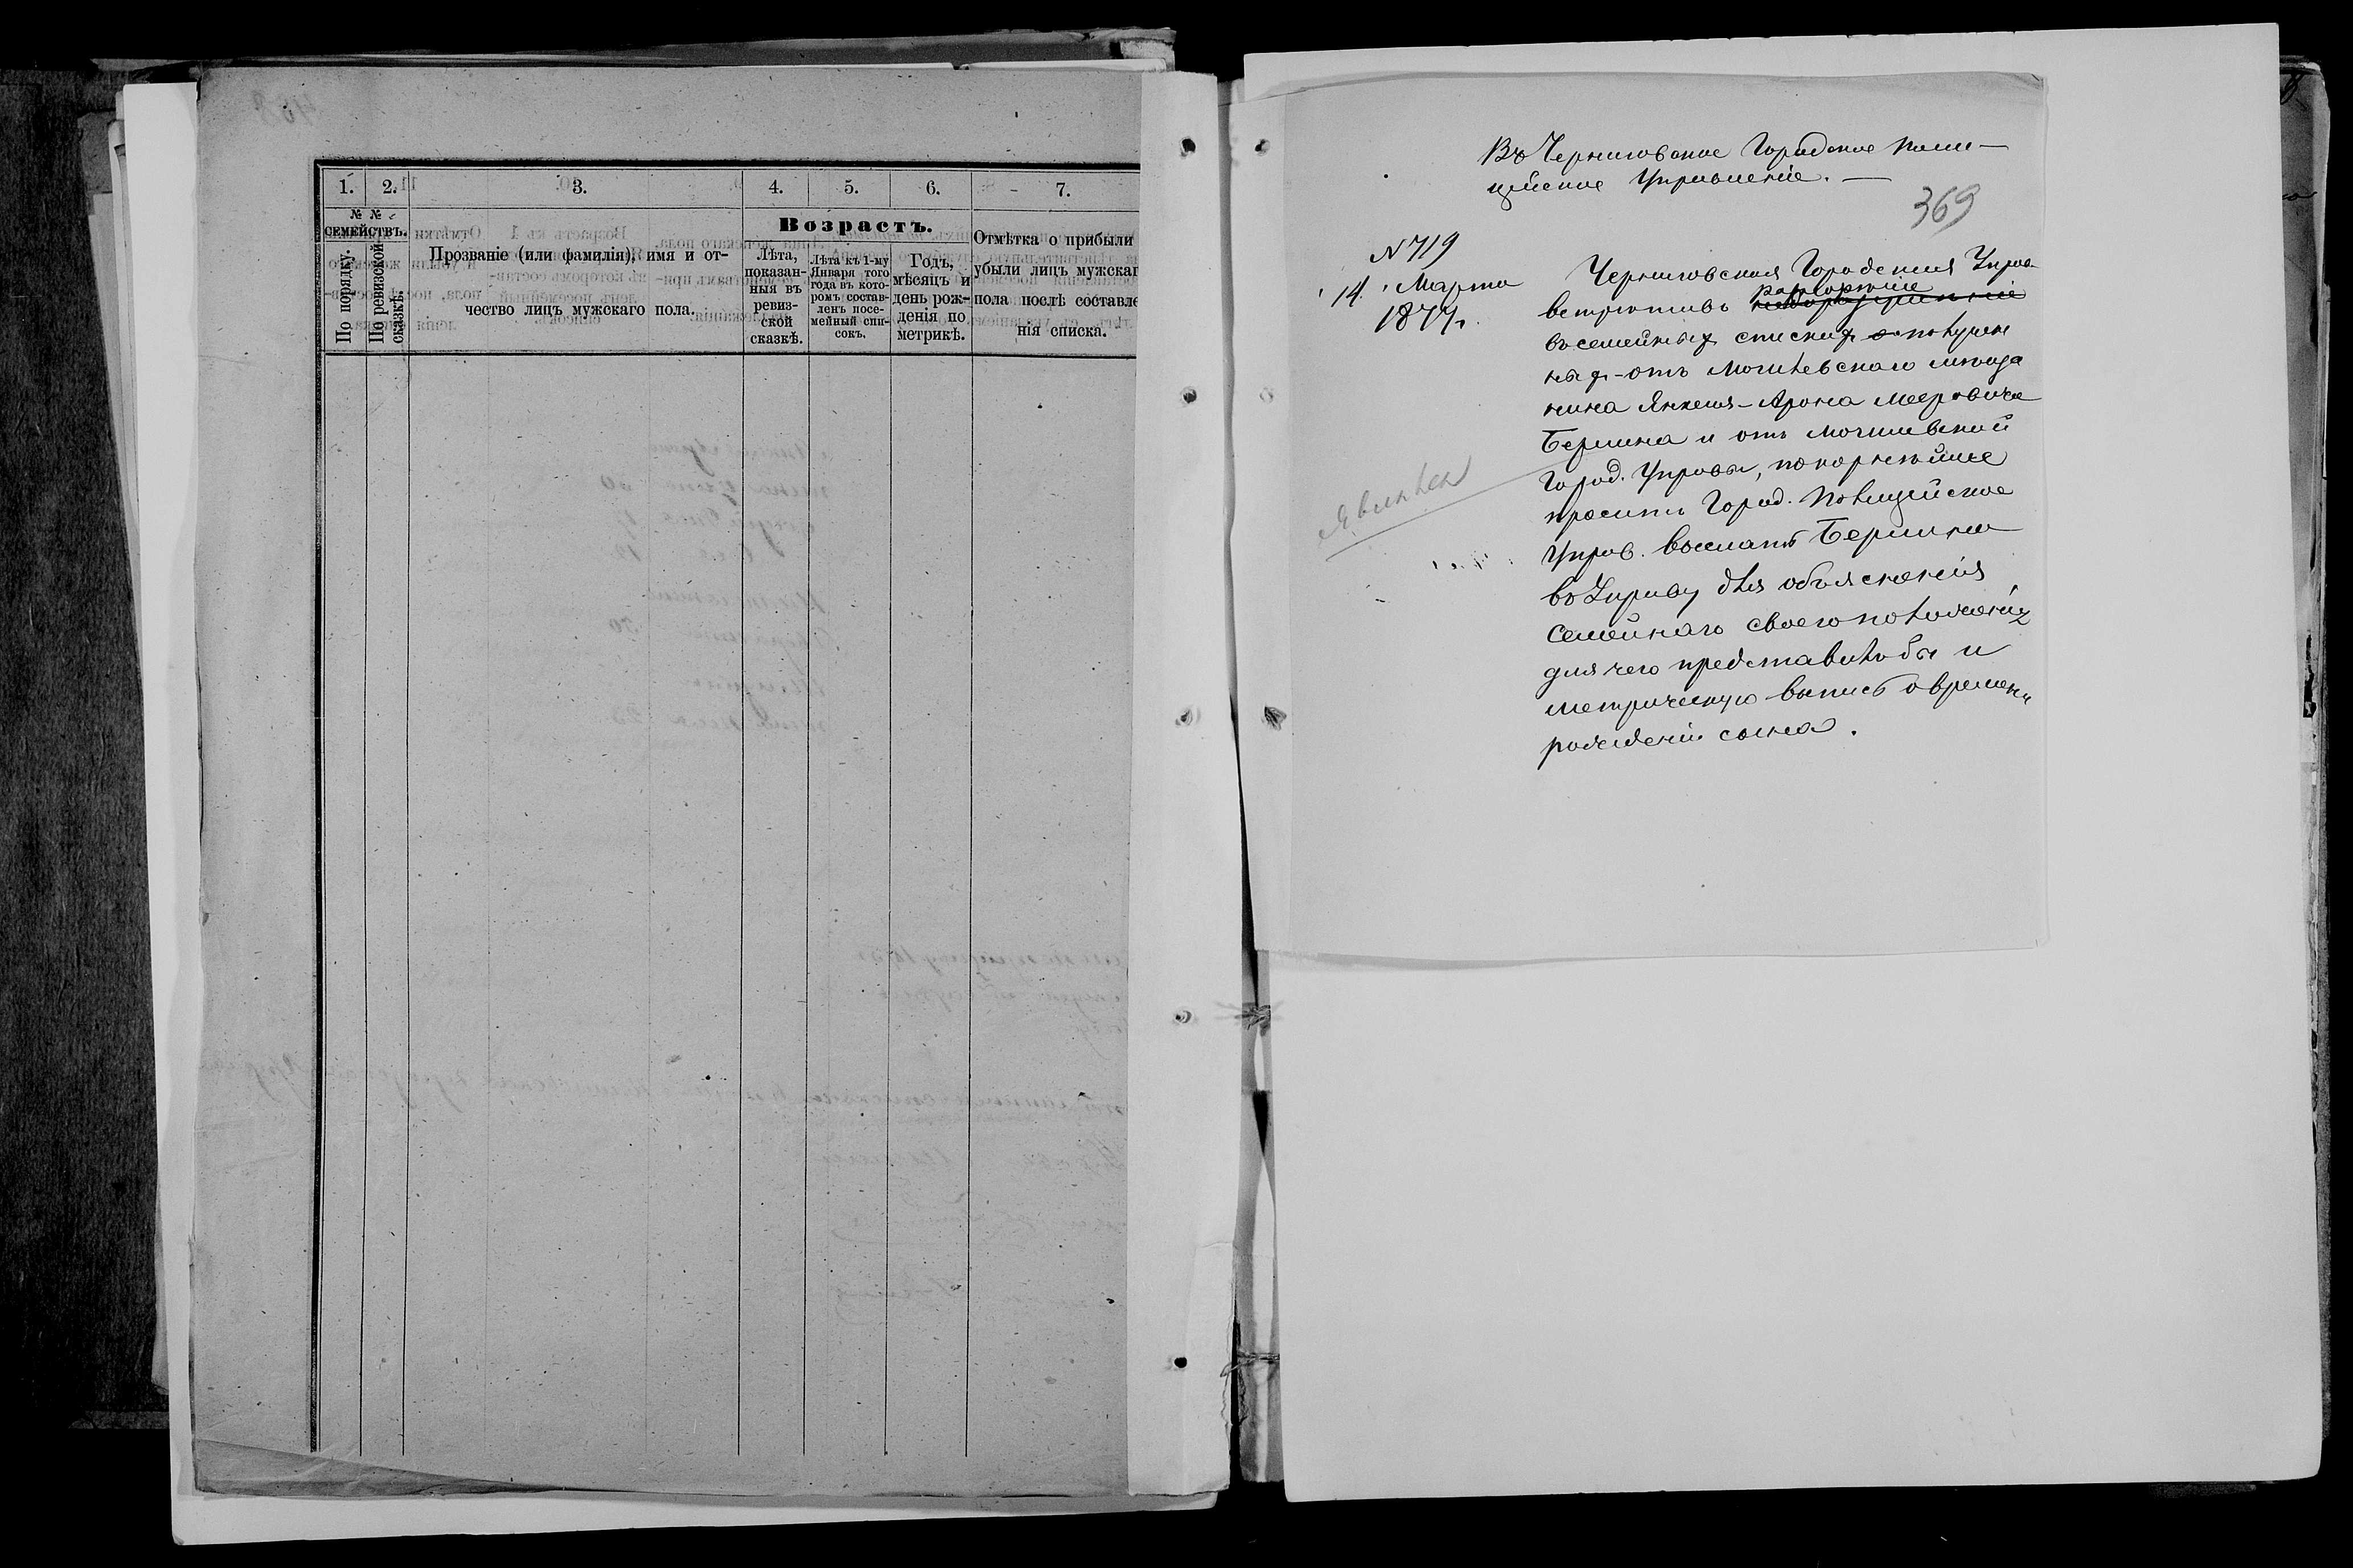 1. 2. 3. 4. 5. 6. 7.
№ №
СЕМЕЙСТВЪ.
По порядку.
По ревизской
сказкѣ.
Прозваніе (или фамилія), имя и от-
чество лицъ мужскаго пола.
Возрастъ.
Лѣта,
показан-
ныя въ
ревиз-
ской
сказкѣ.
Лѣта къ 1-му
Января того
года въ кото-
ромъ состав-
ленъ посе-
мейный спи-
сокъ.
Годъ,
мѣсяцъ и
день рож-
денія по
метрикѣ.
Отмѣтка о прибыли
убыли лицъ мужскаг
пола послѣ составле
нія списка.
Въ Черниговское Городское Поли-
цейское Управленіе.
369
N 719
14 Марта
1877 г.
Черниговская Городская Управа
встрѣтивъ
въ семейныхъ спискахъ получен
ныхъ - отъ Могилевскаго мѣща
нина Янкеля-Арона Мееровича
Берлина и отъ Могилевской
Город. Управы, покорнѣйше
проситъ Город. Полицейское
Управ. выслать Берлина
въ Управу для объясненія
семейнаго своего положенія
для чего представилъ бы и
метрическую выпись о времени
рожденія сына.